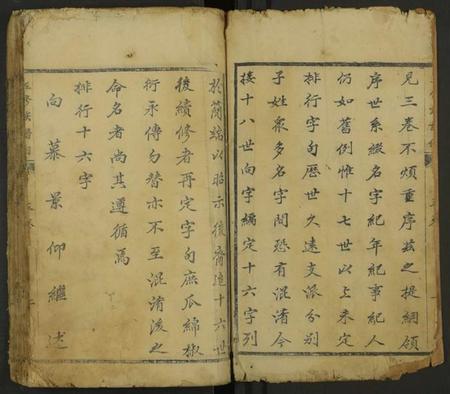 見三卷不煩重序茲之提綱領
序世系綴名字紀年紀事紀人
仍如舊例惟十七世以上未定
排行字句歷世久遠支派分別
子姓眾多名字間恐有混淆今
接十八世向字編定十六字列
於簡端以昭示後裔迨十六世
後續修者再定字句庶瓜綿椒
衍永傳勿替亦不至混淆後之
命名者尚其遵循焉
排行十六字
向慕景仰繼述